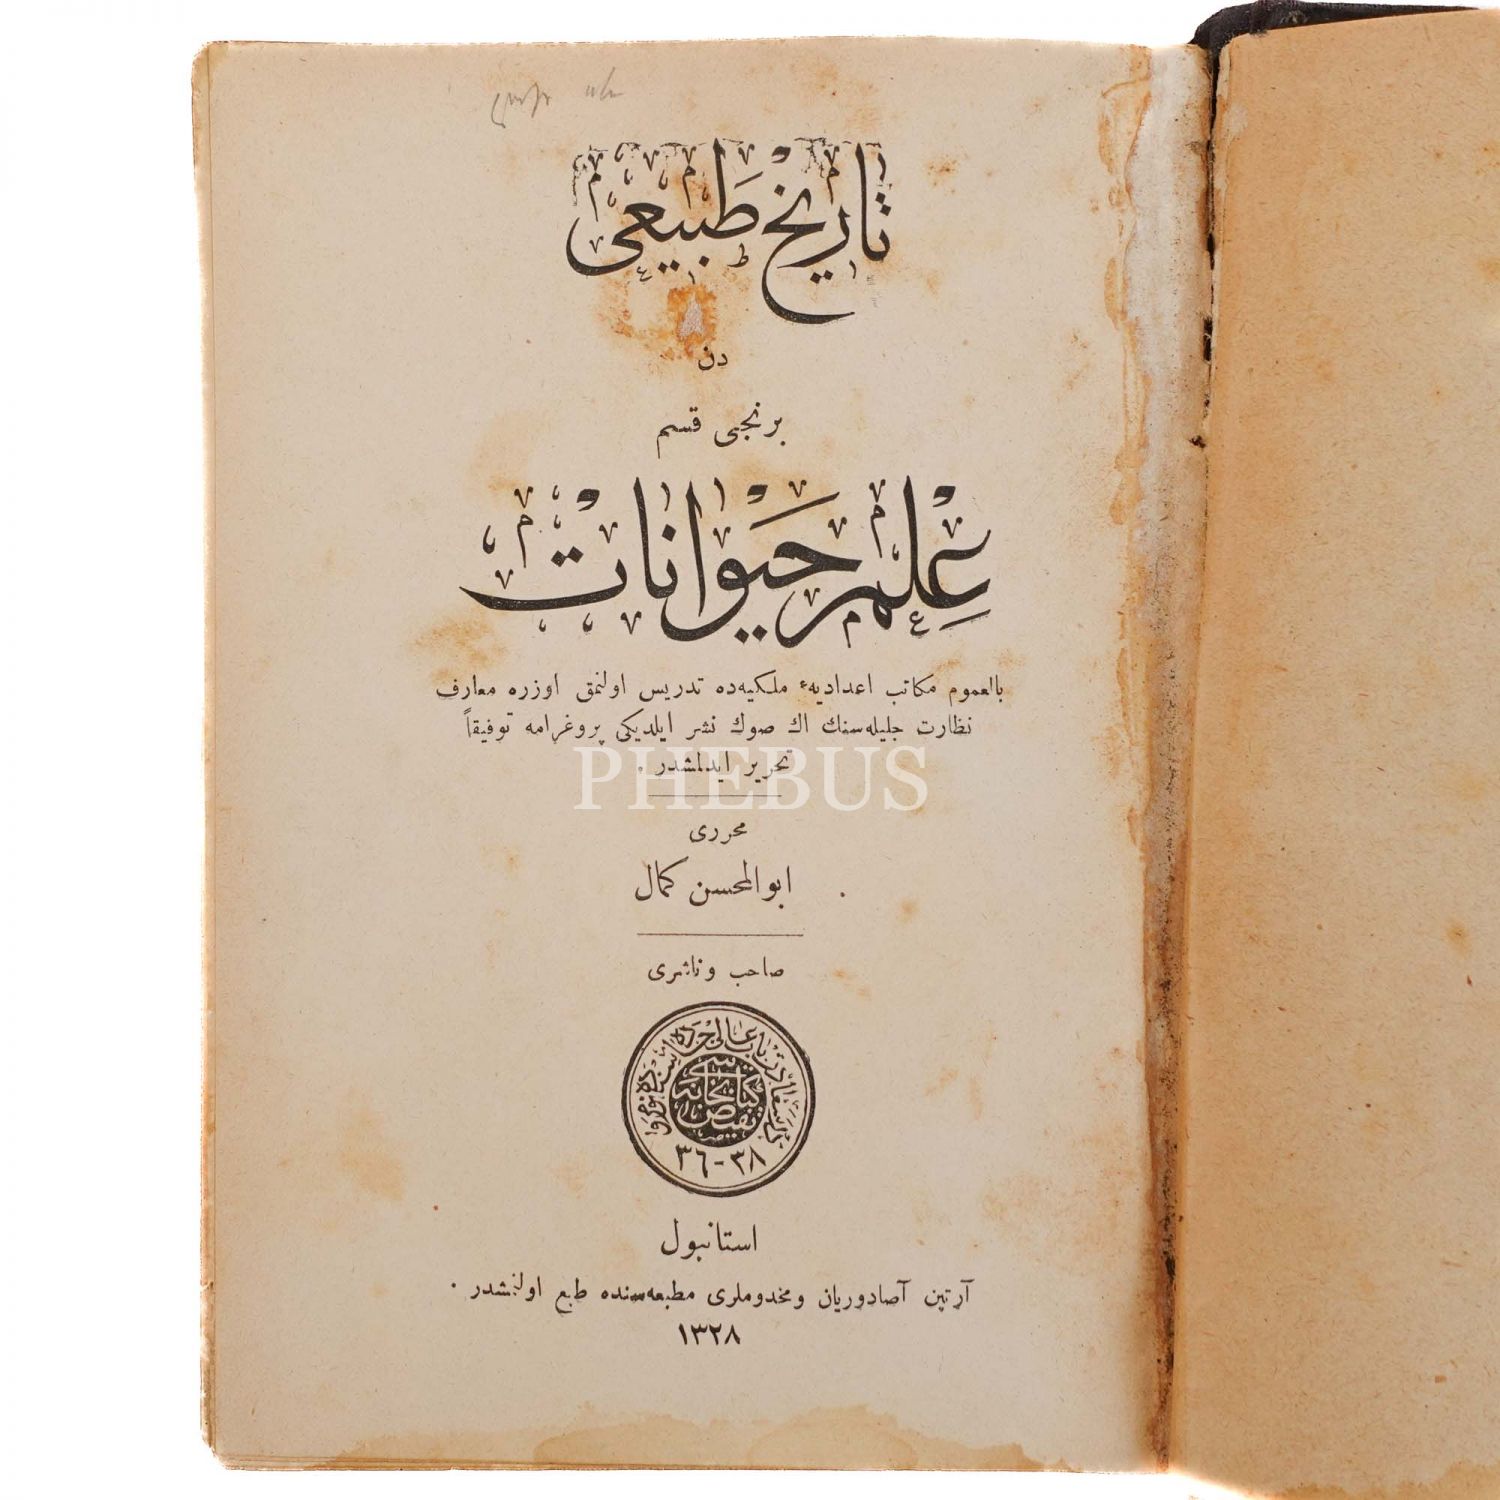 تاريخ طبيعى
دن
برنجى قسم
علم حيوانات
بالعموم مكاتب اعداديهٴ ملكيه‌ده تدريس اولنمق اوزره معارف
نظارت جليله‌سنك اك صوك نشر ايلديكى پروغرامه توفيقاً
تحرير ايدلمشدر .
PHEBUS
محررى
ابوالمحسن كمال
صاحب وناشرى
٣٦-٣٨
استانبول
آرتين آصادوريان ومخدوملرى مطبعه‌سنده طبع اولنمشدر .
١٣٢٨